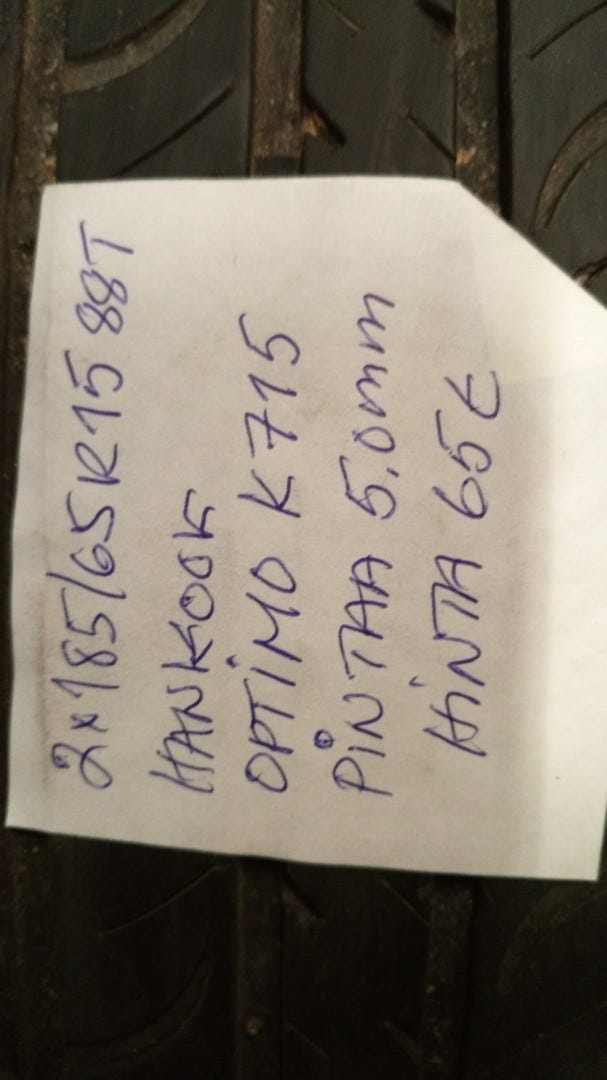 2x185/65R15 88T
HANKOOK
OPTiMO K715
PiNTAA 5.0mm
HiNTA 65€